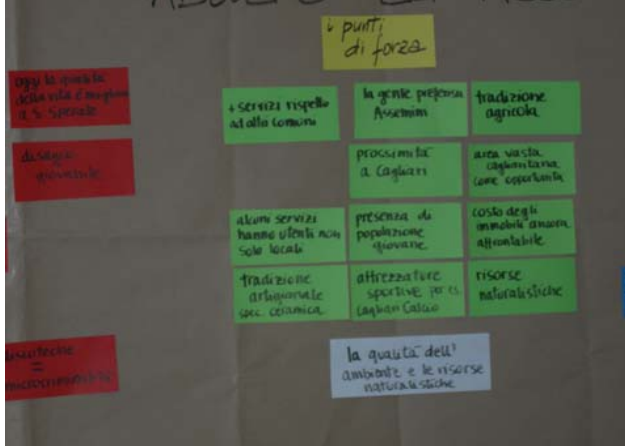 i punti
di forza
oggi la qualità
della vita è migliore
a S. Sperate
disagio
giovanile
+ servizi rispetto
ad altri comuni
la gente preferisce
Assemini
tradizione
agricola
prossimità
a Cagliari
area vasta
cagliaritana
come opportunità
alcuni servizi
hanno utenti non
solo locali
presenza di
popolazione
giovane
costo degli
immobili ancora
affrontabile
tradizione
artigianale
spec. ceramica
attrezzature
sportive per es.
Cagliari Calcio
risorse
naturalistiche
discoteche
=
microcriminalità
la qualità dell'
ambiente e le risorse
naturalistiche